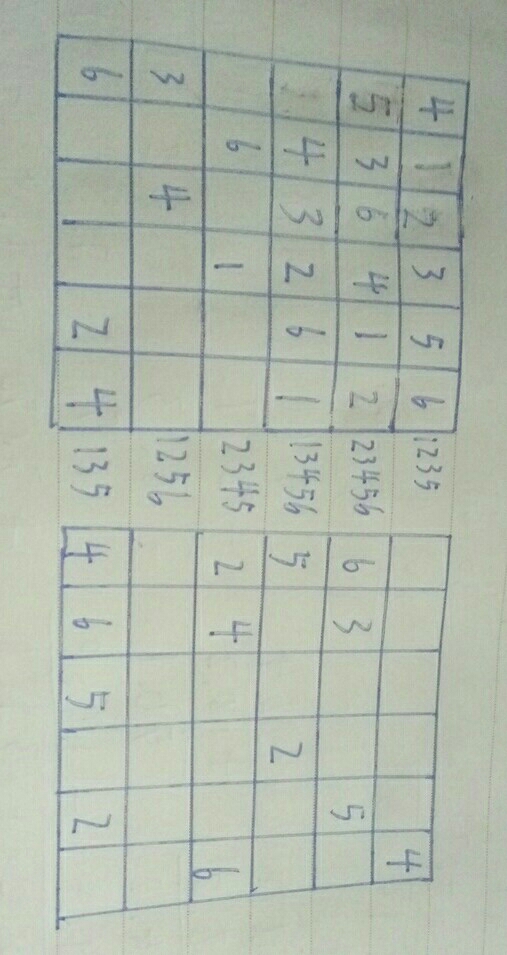 4 1 2 3 5 6 1235 4
5 3 6 4 1 2 23456 6 3 5
4 3 2 6 1 13456 5 2
6 1 2345 2 4 6
3 4 1256
6 2 4 135 4 6 5 2